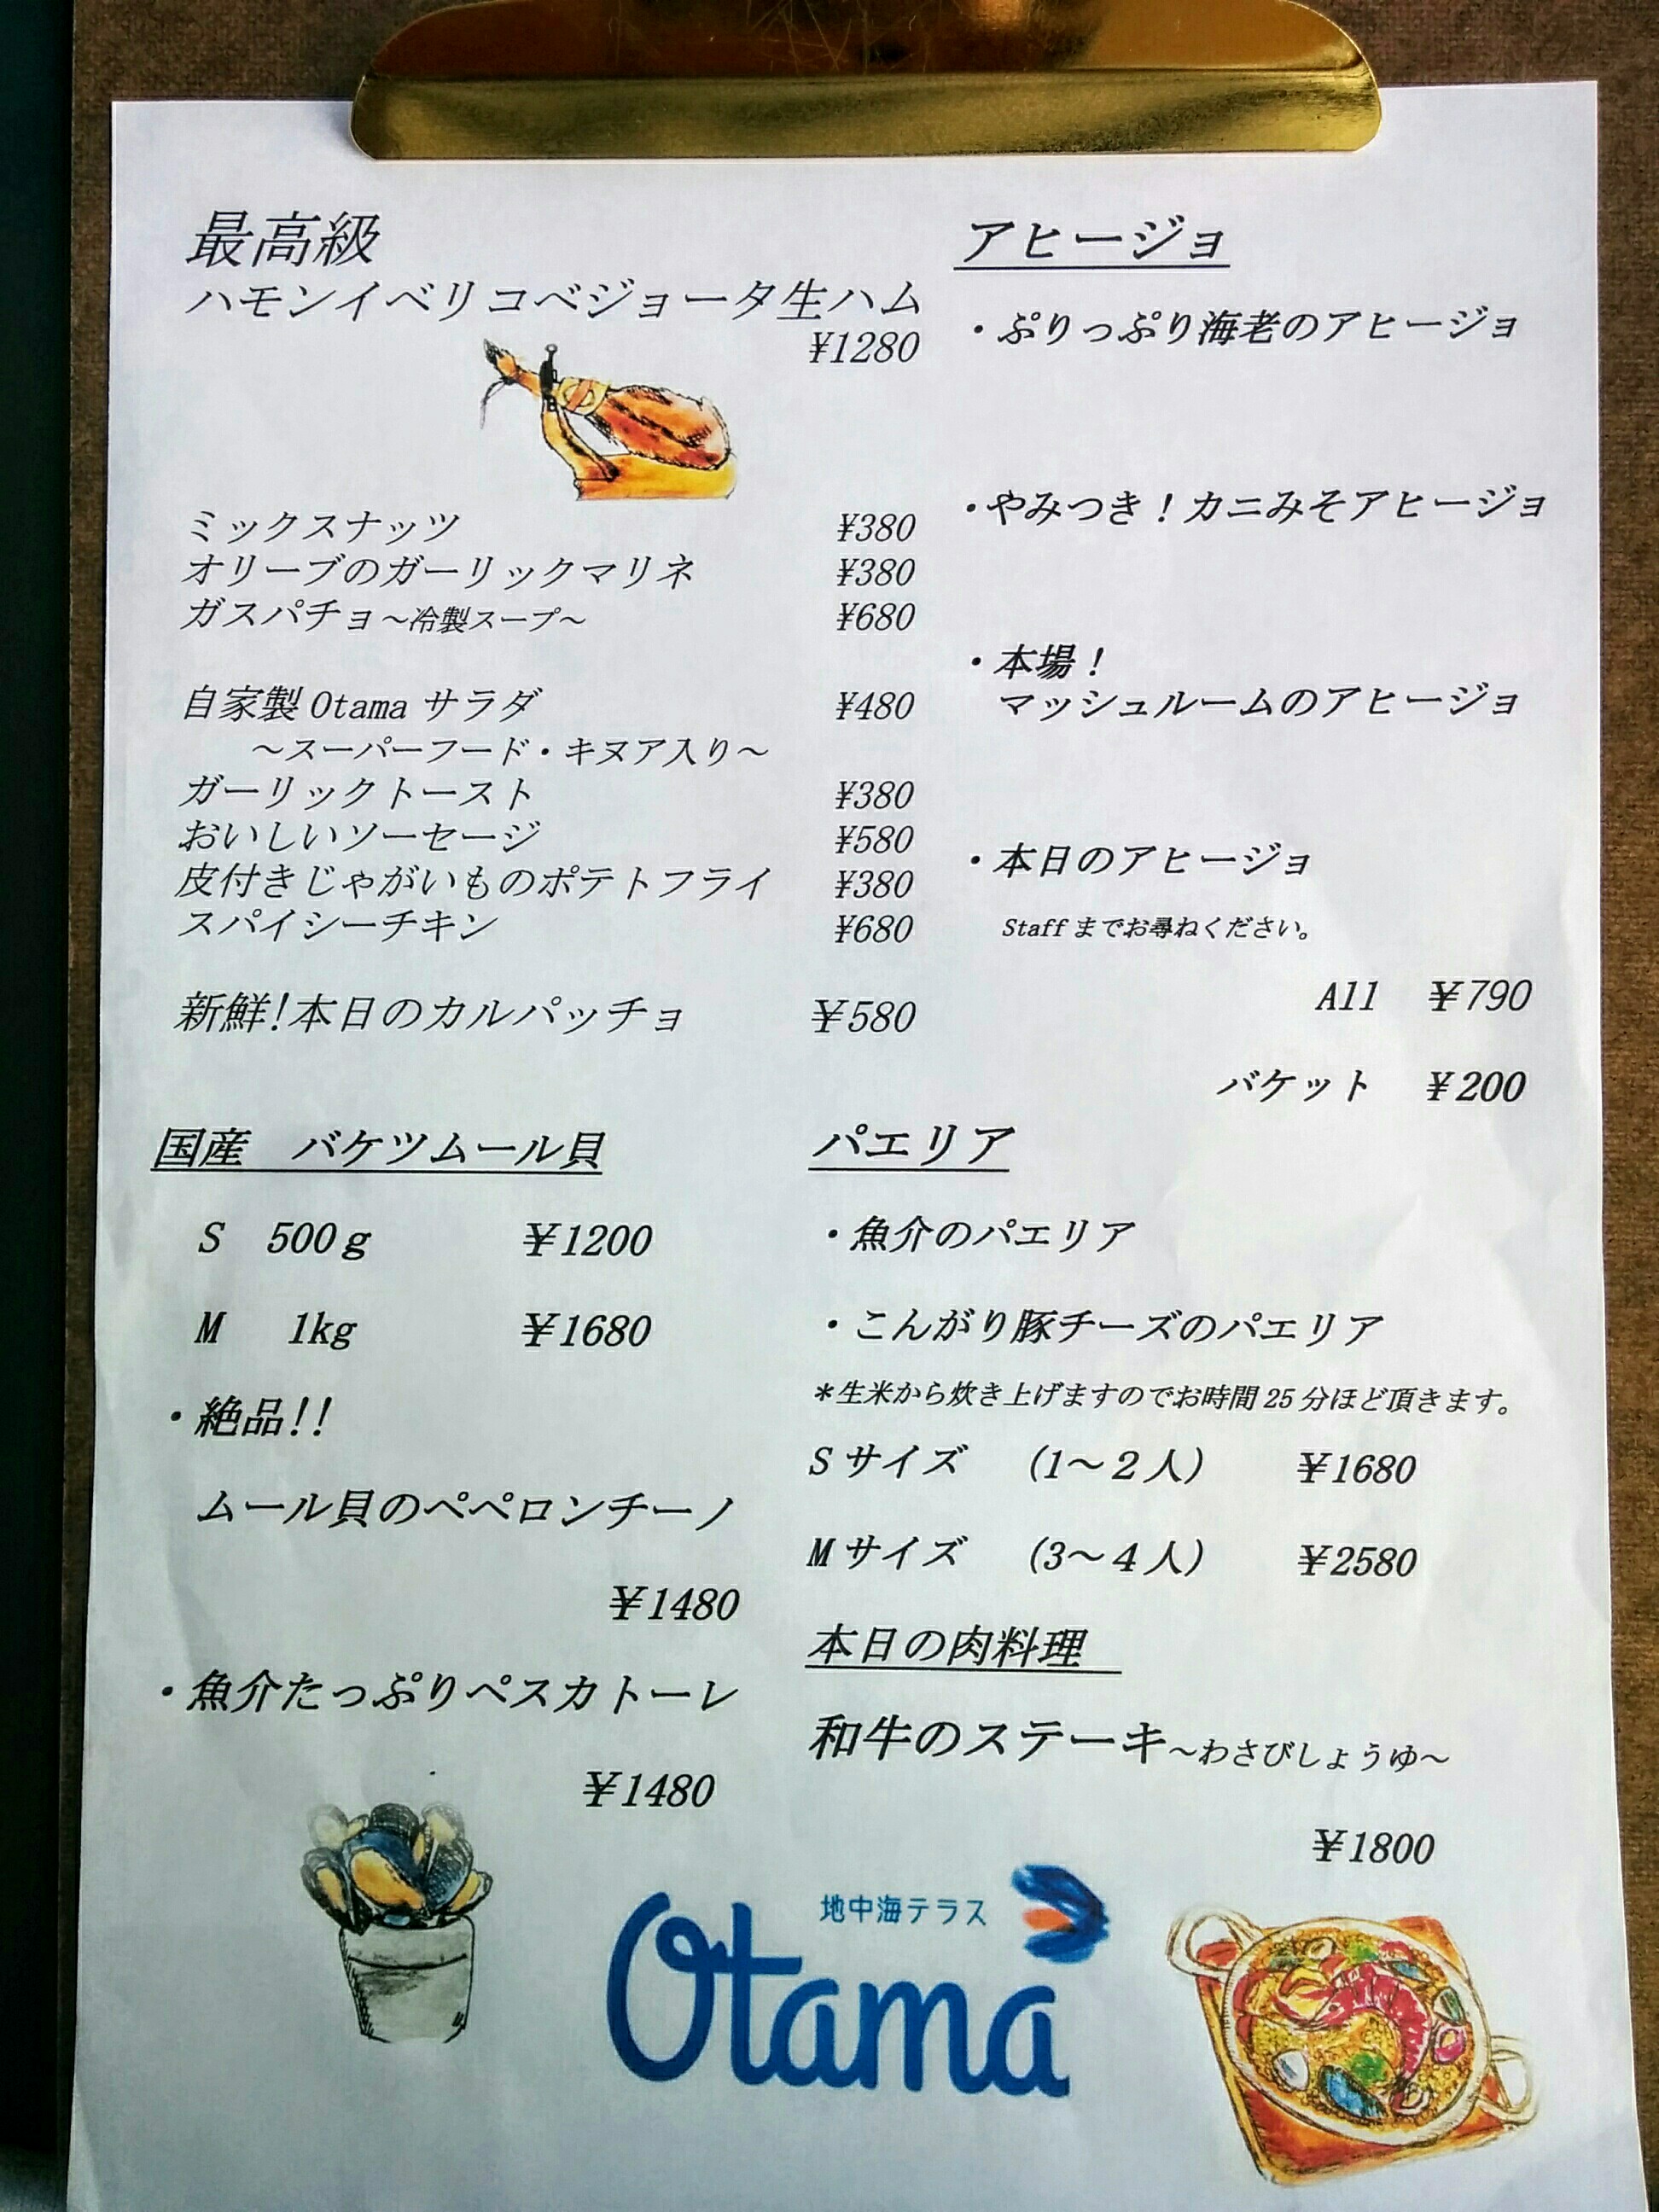 最高級
ハモンイベリコベジョータ生ハム
¥1280
ミックスナッツ ¥380
オリーブのガーリックマリネ ¥380
ガスパチョ～冷製スープ～ ¥680
自家製 Otama サラダ ¥480
～スーパーフード・キヌア入り～
ガーリックトースト ¥380
おいしいソーセージ ¥580
皮付きじゃがいものポテトフライ ¥380
スパイシーチキン ¥680
新鮮!本日のカルパッチョ ￥580
アヒージョ
・ぷりっぷり海老のアヒージョ
・やみつき！カニみそアヒージョ
・本場！
マッシュルームのアヒージョ
・本日のアヒージョ
Staff までお尋ねください。
All ￥790
バケット ￥200
国産 バケツムール貝
S 500ｇ ￥1200
M 1kg ￥1680
・絶品!!
ムール貝のペペロンチーノ
￥1480
・魚介たっぷりペスカトーレ
￥1480
パエリア
・魚介のパエリア
・こんがり豚チーズのパエリア
＊生米から炊き上げますのでお時間 25 分ほど頂きます。
S サイズ (1～２人) ￥1680
M サイズ (3～４人) ￥2580
本日の肉料理
和牛のステーキ～わさびしょうゆ～
￥1800
地中海テラス
Otama